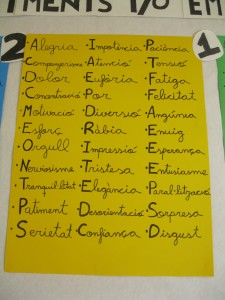 TIMENTS I/O EM
2
1
· Alegria
· Companyerisme
· Dolor
· Concentració
· Motivació
· Esforç
· Orgull
· Nerviosisme
· Tranquil·litat
· Patiment
· Serietat
· Impotència
· Atenció
· Eufòria
· Por
· Diversió
· Ràbia
· Impressió
· Tristesa
· Elegància
· Desorientació
· Confiança
· Paciència
· Tensió
· Fatiga
· Felicitat
· Angúnia
· Enuig
· Esperança
· Entusiasme
· Paral·lització
· Sorpresa
· Disgust